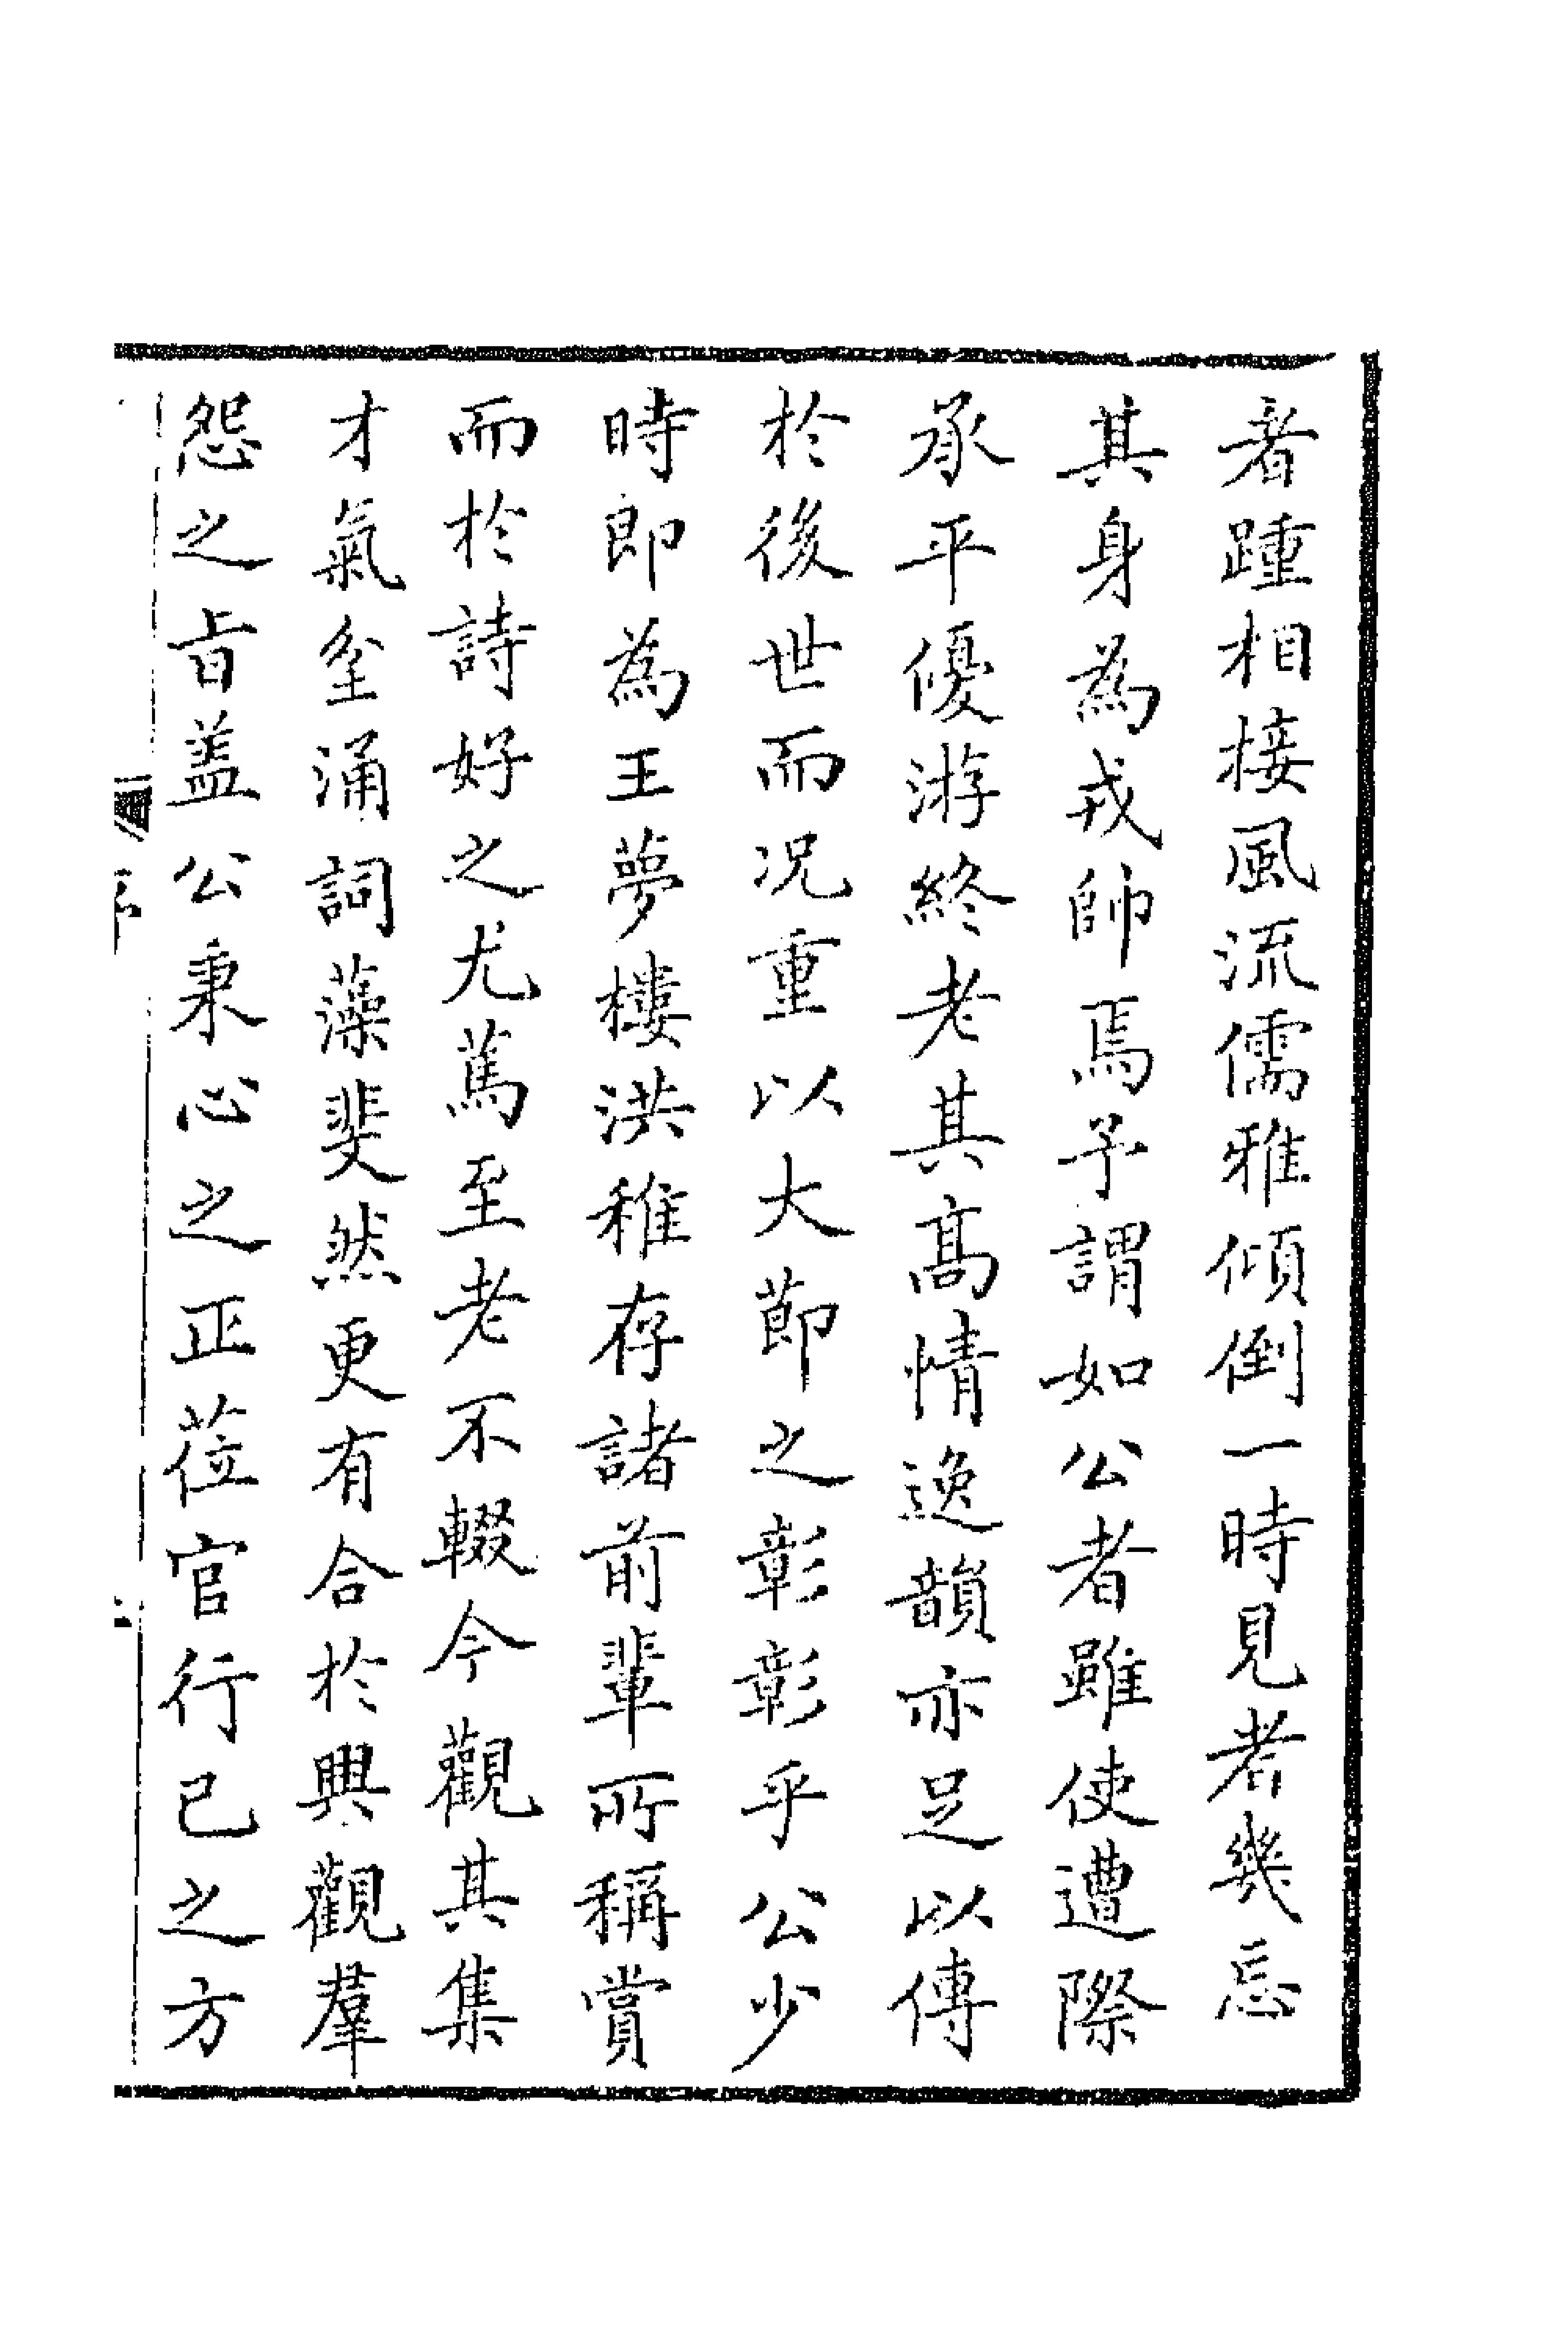 者踵相接風流儒雅傾倒一時見者幾忘
其身為戎帥焉予謂如公者雖使遭際
承平優游終老其髙情逸韻亦足以傳
於後世而况重以大節之彰彰乎公少
時即為王夢樓洪稚存諸前輩所稱賞
而於詩好之尤篤至老不輟今觀其集
才氣坌涌詞藻斐然更有合於興觀羣
怨之旨盖公秉心之正莅官行已之方